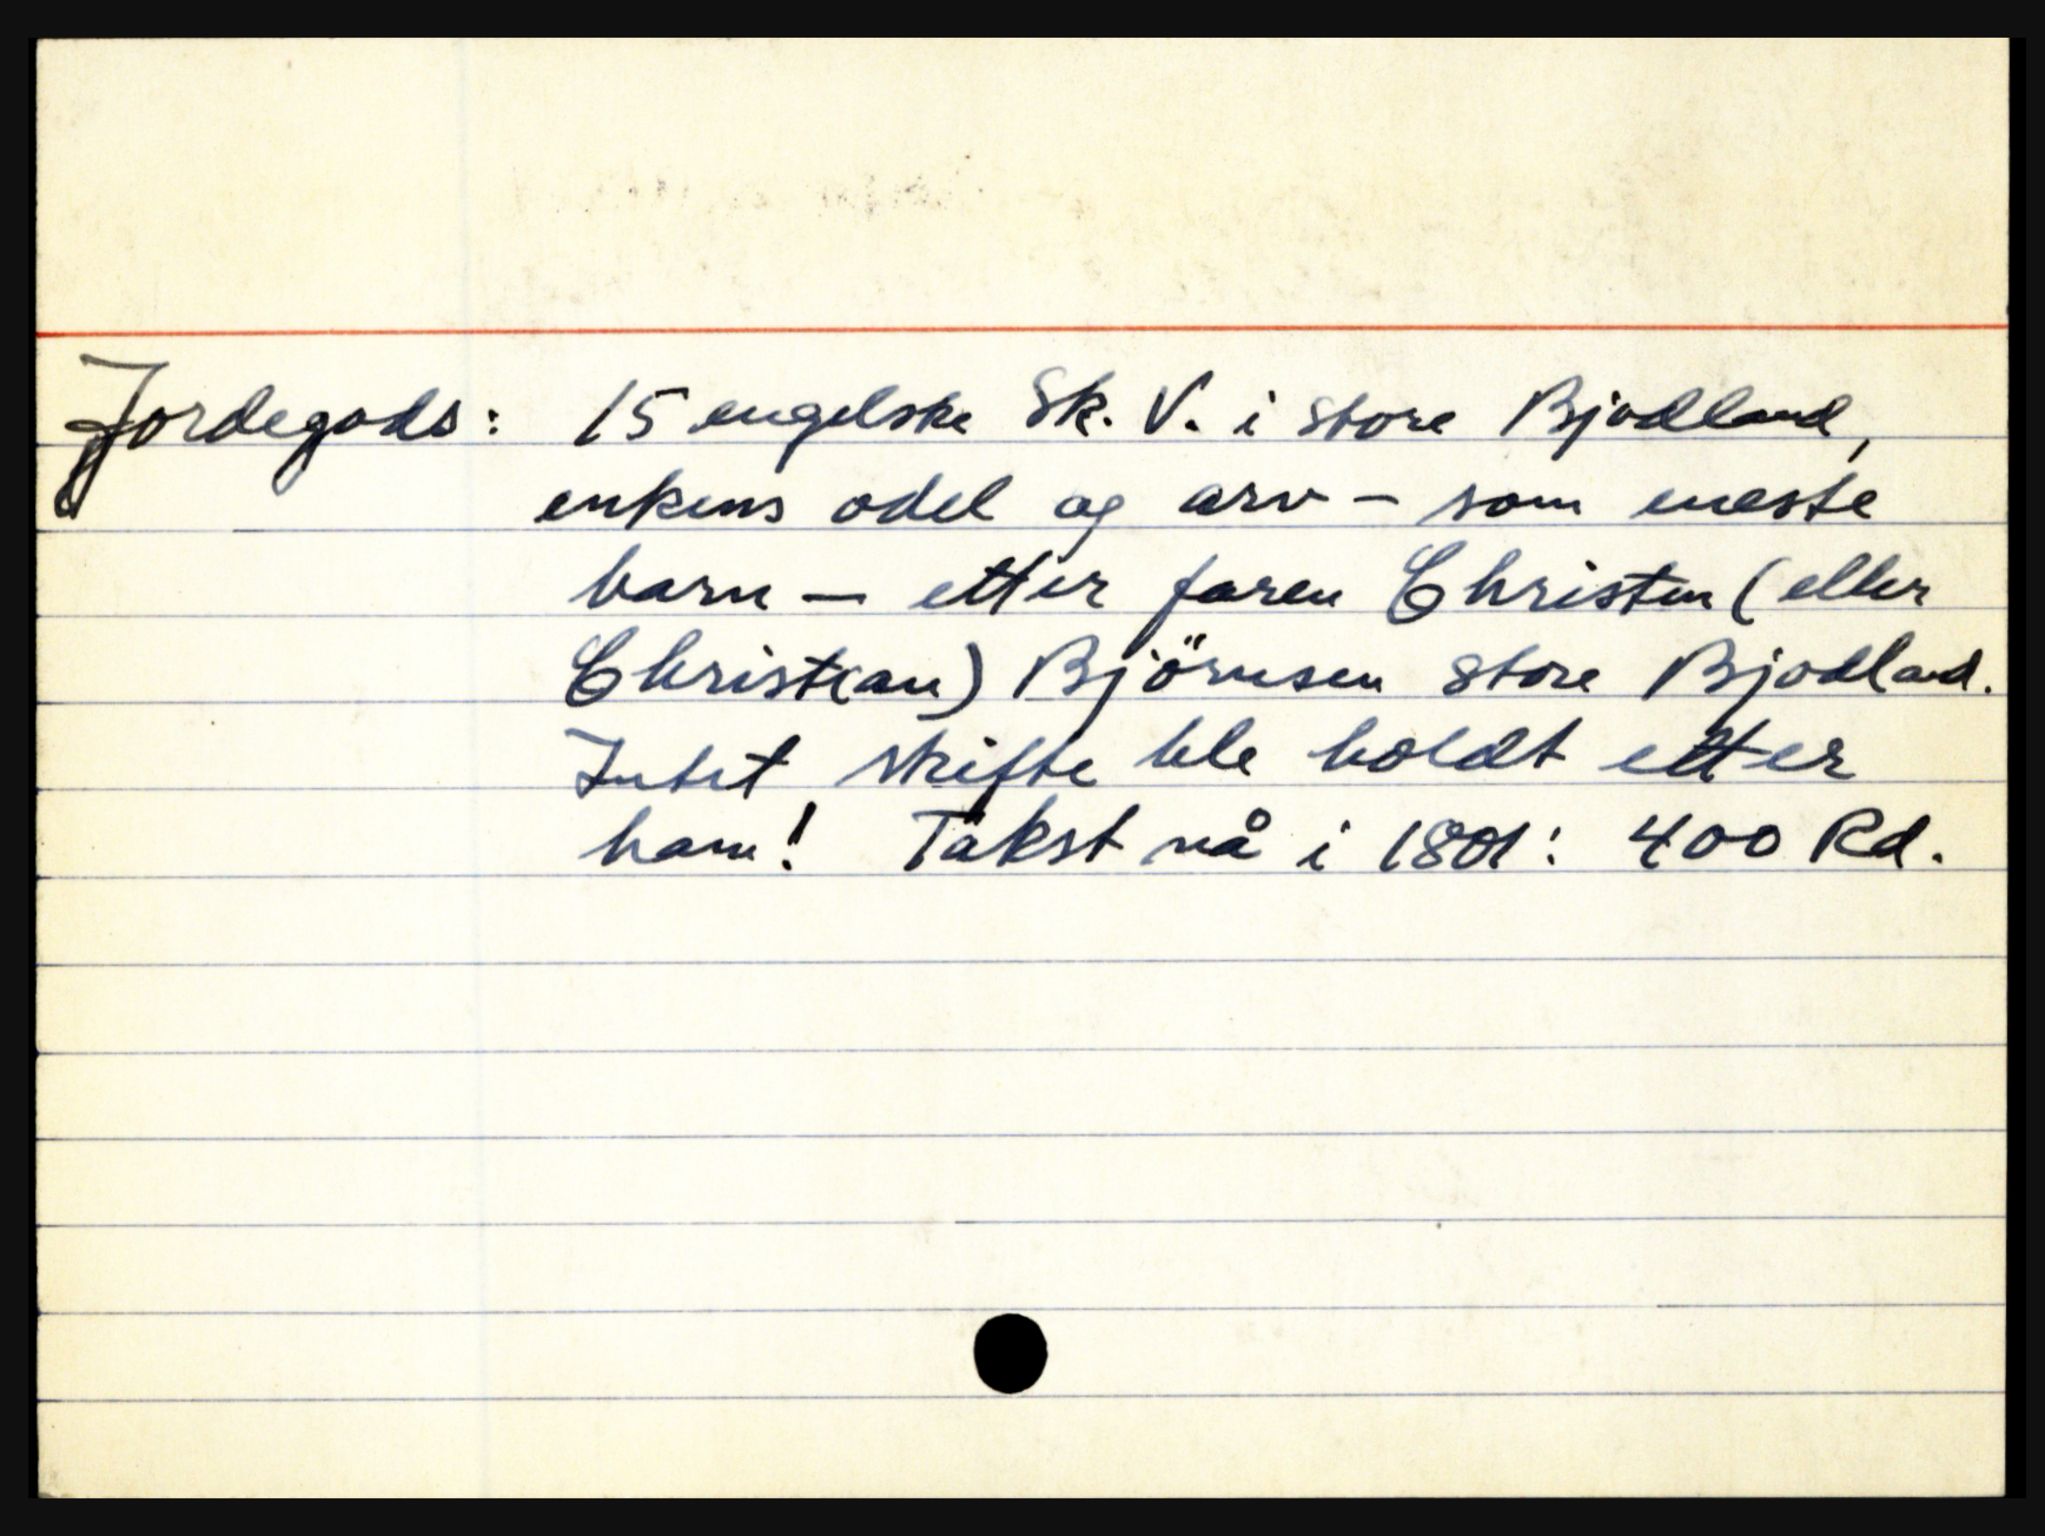 Jordegods: 15 engelske Sk. V. i Store Bjodland,
enkens odel og arv - som eneste
barn - etter faren Christen (eller
Christian) Björnsen Store Bjodland.
Intet skifte ble holdt etter
ham! Takst nå i 1801: 400 Rd.